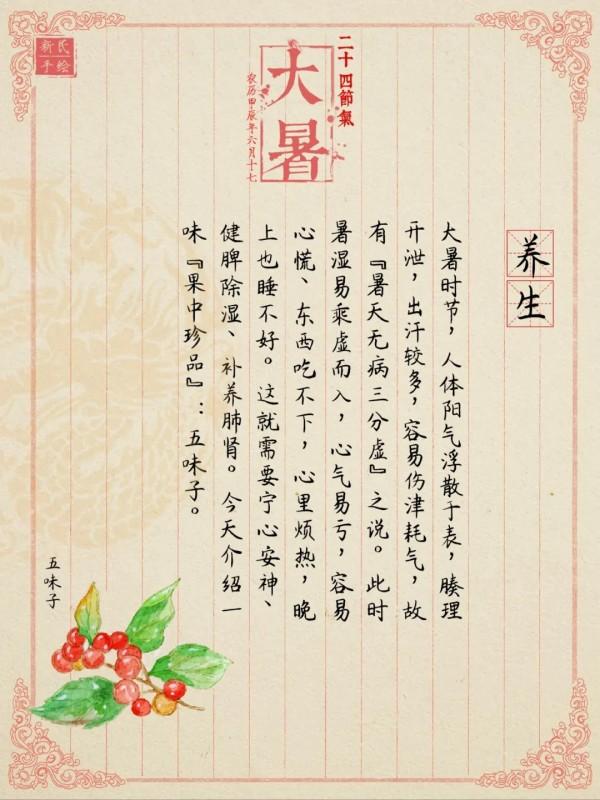 新氏
手绘
二十四節氣
大暑
农历甲辰年六月十七
养生
大暑时节，人体阳气浮散于表，腠理
开泄，出汗较多，容易伤津耗气，故
有『暑天无病三分虚』之说。此时
暑湿易乘虚而入，心气易亏，容易
心慌、东西吃不下，心里烦热，晚
上也睡不好。这就需要宁心安神、
健脾除湿、补养肺肾。今天介绍一
味『果中珍品』：五味子。
五味子